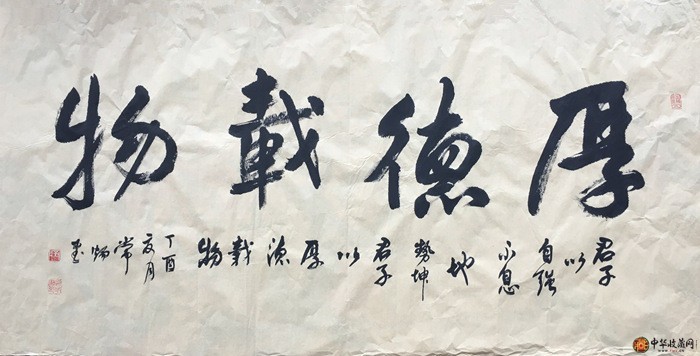 厚德載物
君子
以
自强
不息
地
勢坤
君子
以
厚
德
載
物
丁酉
夏月
常
书
中华收藏网